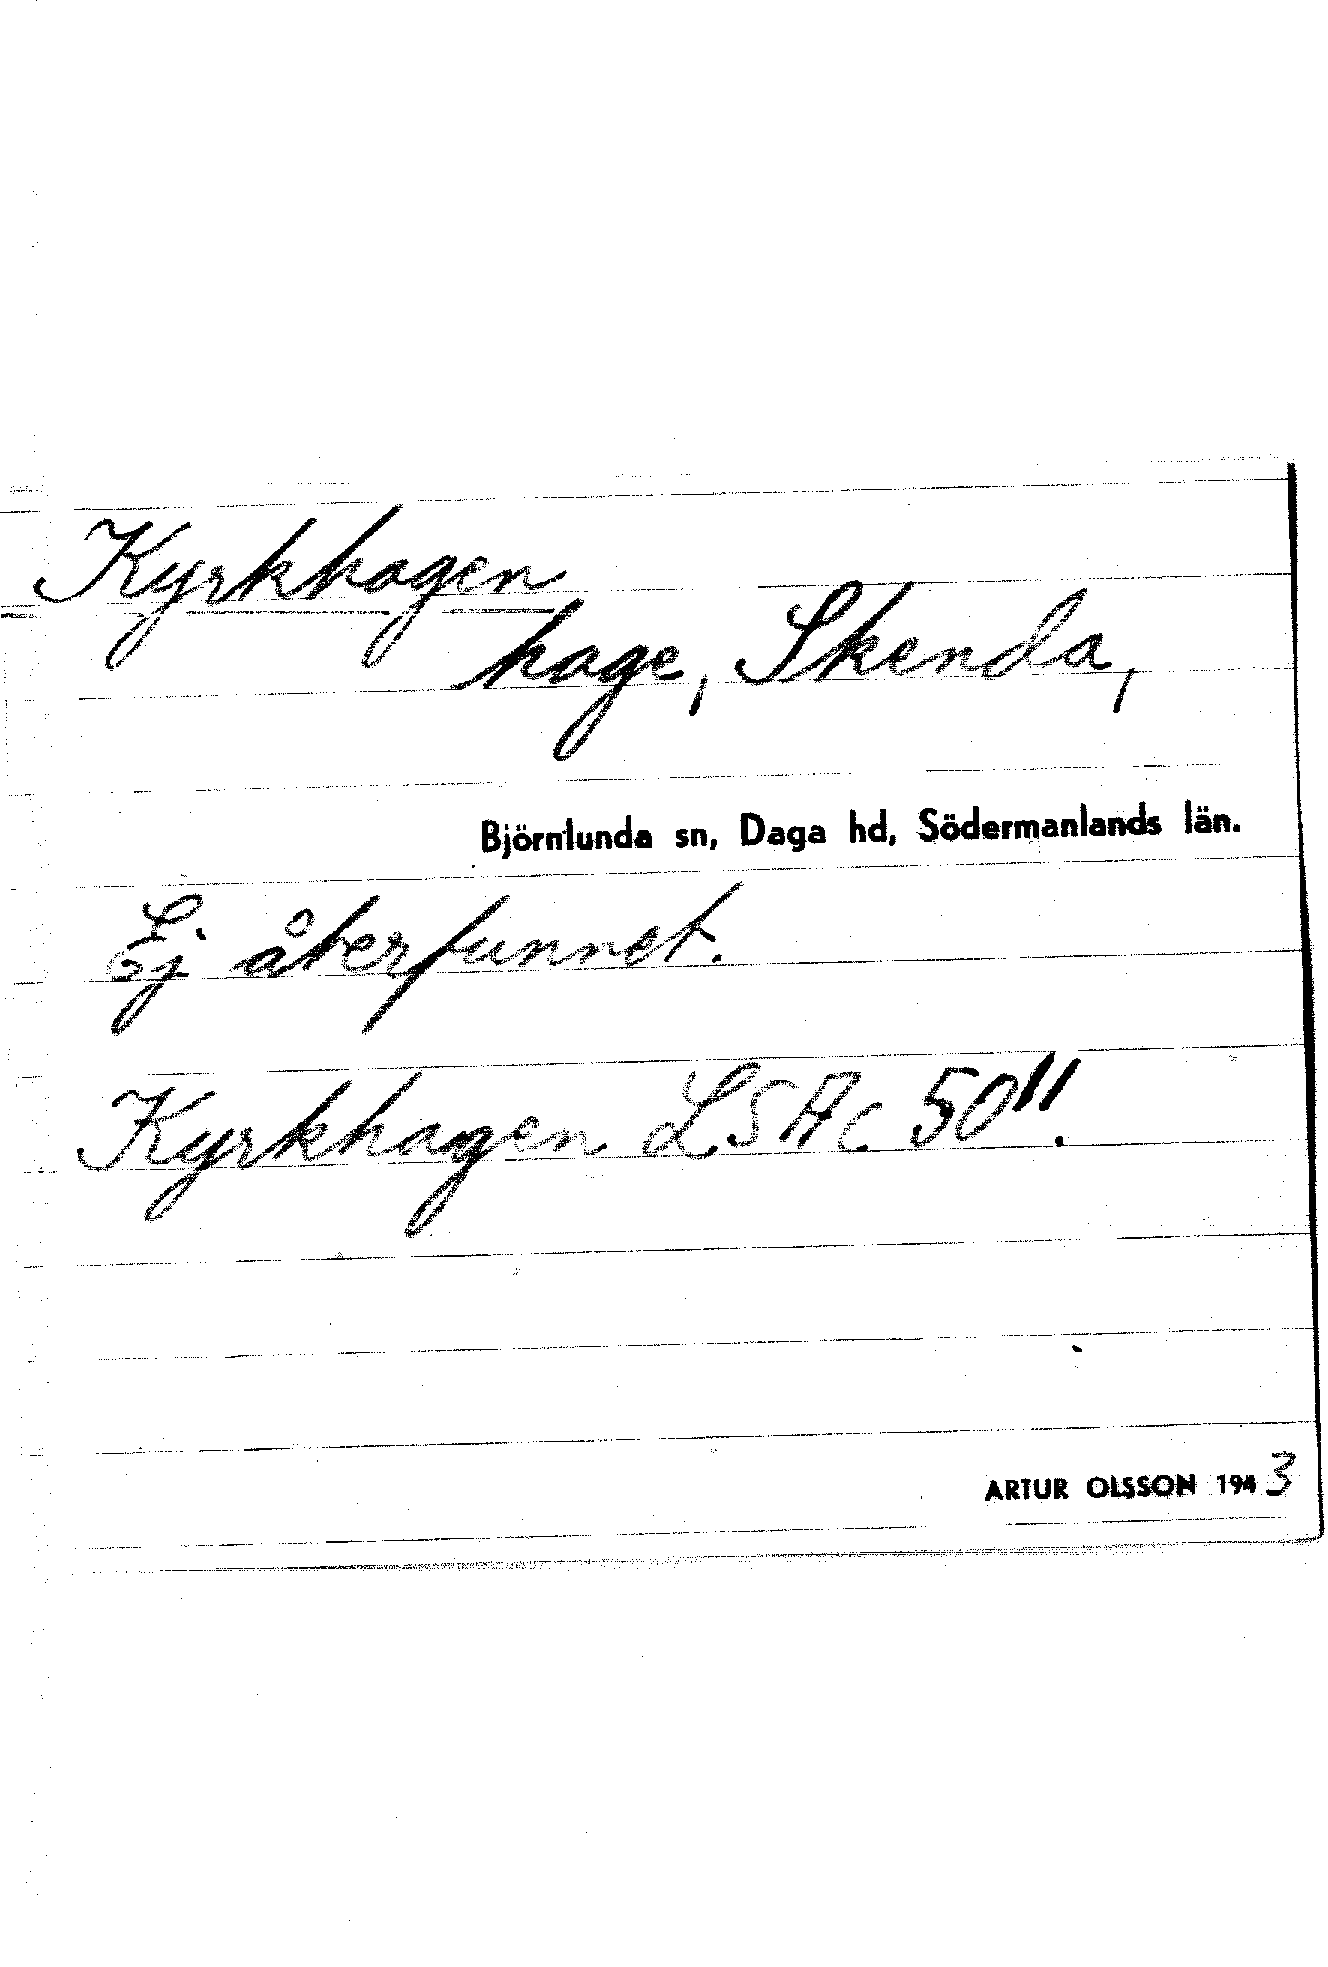 Kyrkhagen
hage, Skenda,
Björnlunda sn, Daga hd, Södermanlands län.
Ej återfunnet.
Kyrkhagen LSAc 50".
ARTUR OLSSON 1943